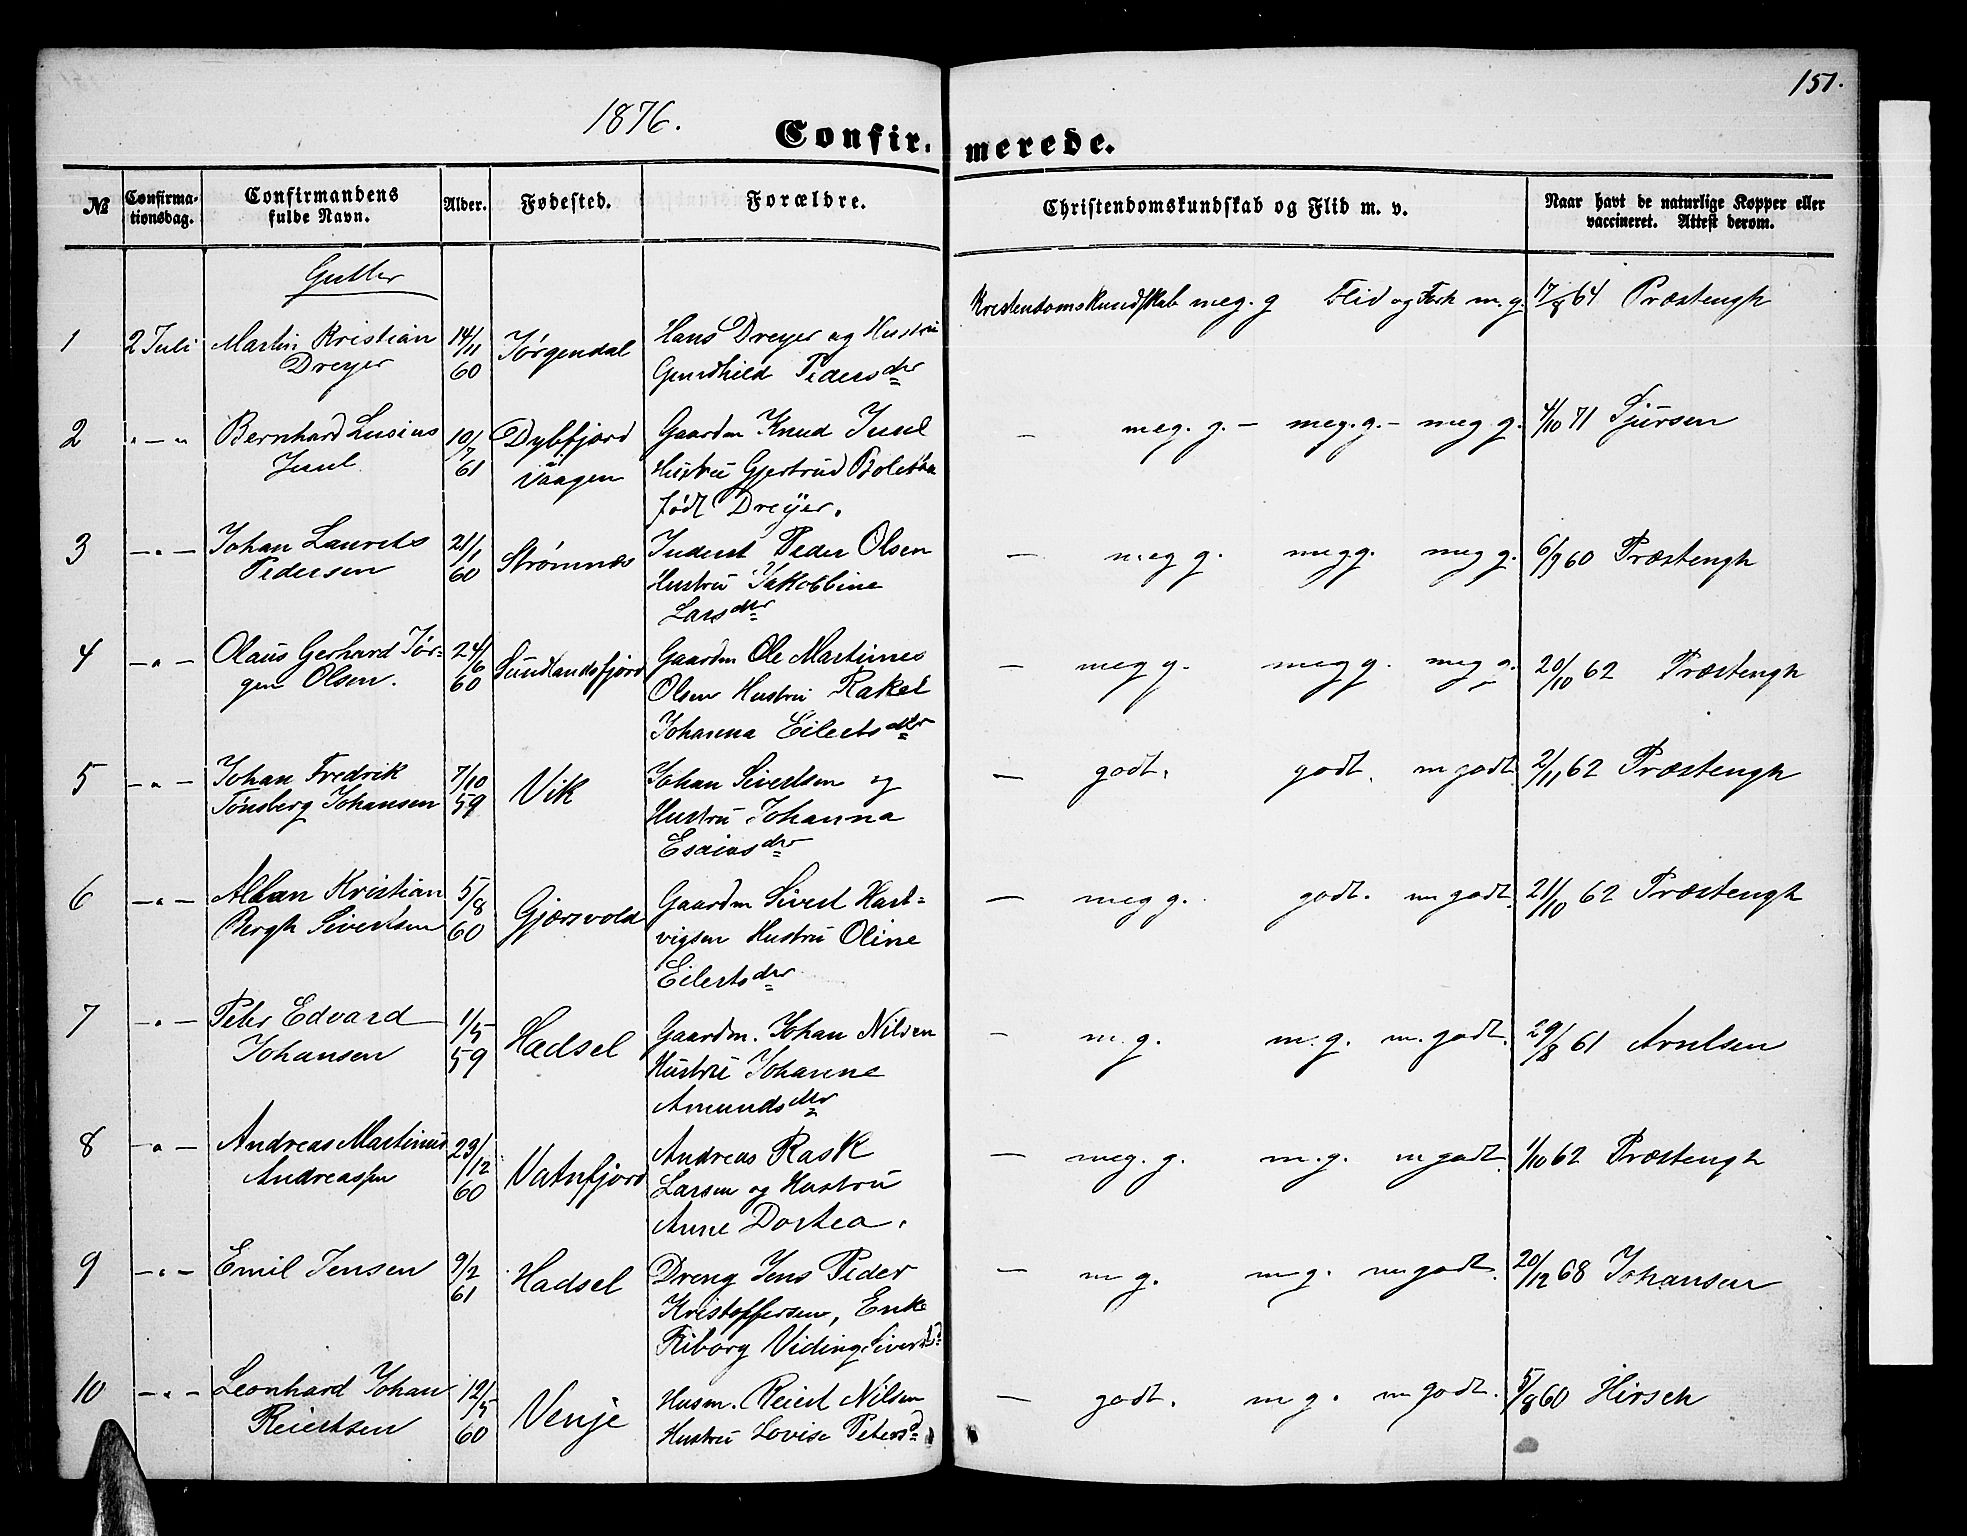 151.
1876.
Confir. merede.
№ Confirma-tionsdag. Confirmandens fulde Navn. Alder. Fødested. Forældre. Christendomskundskab og Flid m. v. Naar havt de naturlige Kopper eller vaccineret. Attest derom.
Gutter
1 2 Juli Martin Kristian 14/11 Jørgendal Hans Dreyer og Hustru Kristendomskundskab meg. g Flid og Forh m. g. 17/8 64 Præstengh
Dreyer 60 Gundhild Pedersdtr
2 " — " Bernhard Lusius 10/7 Dybfjord Gaardm Knud Juul — meg. g. — meg. g. — meg g. 4/10 71 Sjursen
Juul 61 Vaagen Hustru Gjertrud
født Dreyer.
3 — " — Johan Laurets 21/1 Strømnæs Inderst Peder Olsen — meg g. meg g. meg g. 6/9 60 Præstengh
Pedersen 60 Hustru Jakobbine
Larsdtr
4 — " — Olaus Gerhard Jør- 24/6 Sundlandsfjord Gaardm Ole Martines — meg g. meg g. meg g. 20/10 62 Præstengh
gen Olsen. 60 Olsen Hustru Rakel
Johanna Eilertsdtr
5 — " — Johan Fredrik 7/10 Vik Johan Sivertsen og — godt. godt. m godt 2/11 62 Præstengh
Tønsberg Johansen 59 Hustru Johanna
Esaiasdtr
6 — " — Alban Kristian 5/8 Gjærsvold Gaardm Sivert Hart- — meg g. godt. m godt. 21/10 62 Præstengh
Bergh Sivertsen 60 vigsen Hustru Oline
Eilertsdtr
7 — " — Peter Edvard 1/5 Hadsel Gaardm. Johan Nilsen — m. g. m. g. m. godt. 29/8 61 Arntsen
Johansen 59 Hustru Johanne
Amundsdtr
8 — " — Andreas Martinus 29/12 Vatnfjord Andreas Rask — meg. g. m. g. m godt. 1/10 62 Præstengh
Andreassen 60 Larsen og Hustru
Anne Dortea.
9 — " — Emil Jensen 9/2 Hadsel Dreng Jens Peder — m g. m g. m godt. 20/12 68 Johansen
61 Kristoffersen, Enke
Riborg Viding
10 — " — Leonhard Johan 12/5 Venje Husm. Reiert Nilsen — godt. m g. m godt. 5/8 60 Hirsch
Reiertsen 60 Hustru Lovise Petersd